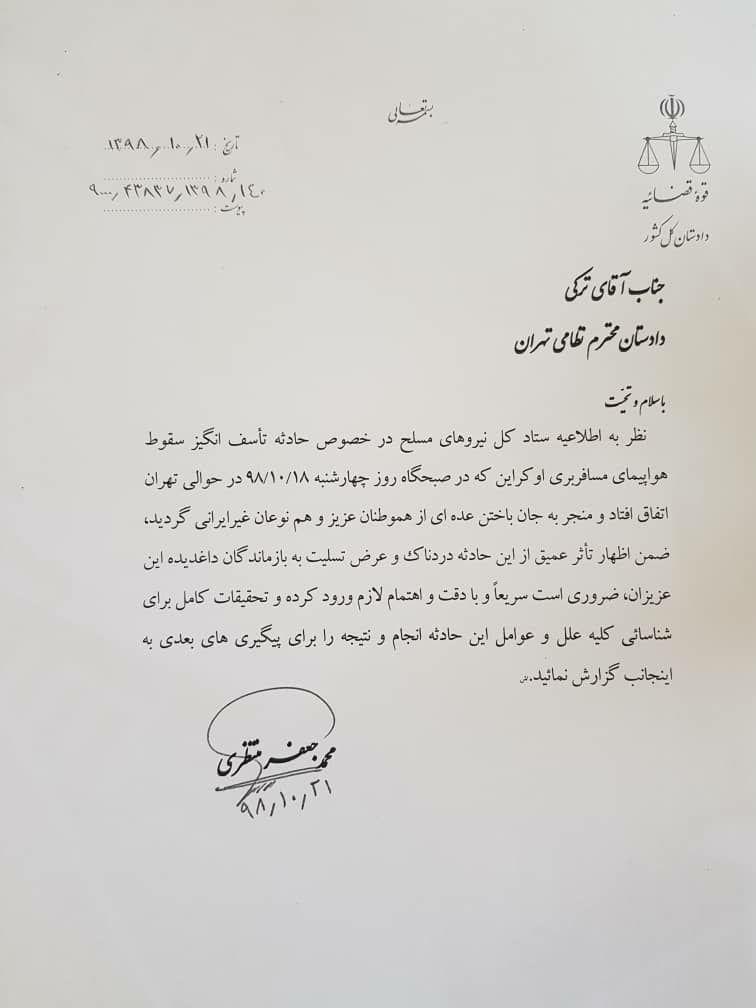 بسمه تعالی
قوهٔ قضائیه
دادستان کل کشور
تاریخ : ۱۳۹۸/۱۰/۲۱
شماره : ۹۰۰۰/۴۳۸۳۷/۱۳۹۸/۱۴۰
پیوست :
جناب آقای ترکی
دادستان محترم نظامی تهران
با سلام و تحیّت
نظر به اطلاعیه ستاد کل نیروهای مسلح در خصوص حادثه تأسف انگیز سقوط
هواپیمای مسافربری اوکراین که در صبحگاه روز چهارشنبه ۹۸/۱۰/۱۸ در حوالی تهران
اتفاق افتاد و منجر به جان باختن عده ای از هموطنان عزیز و هم نوعان غیرایرانی گردید،
ضمن اظهار تأثر عمیق از این حادثه دردناک و عرض تسلیت به بازماندگان داغدیده این
عزیزان، ضروری است سریعاً و با دقت و اهتمام لازم ورود کرده و تحقیقات کامل برای
شناسائی کلیه علل و عوامل این حادثه انجام و نتیجه را برای پیگیری های بعدی به
اینجانب گزارش نمائید.ش
محمد جعفر منتظری
۹۸/۱۰/۲۱